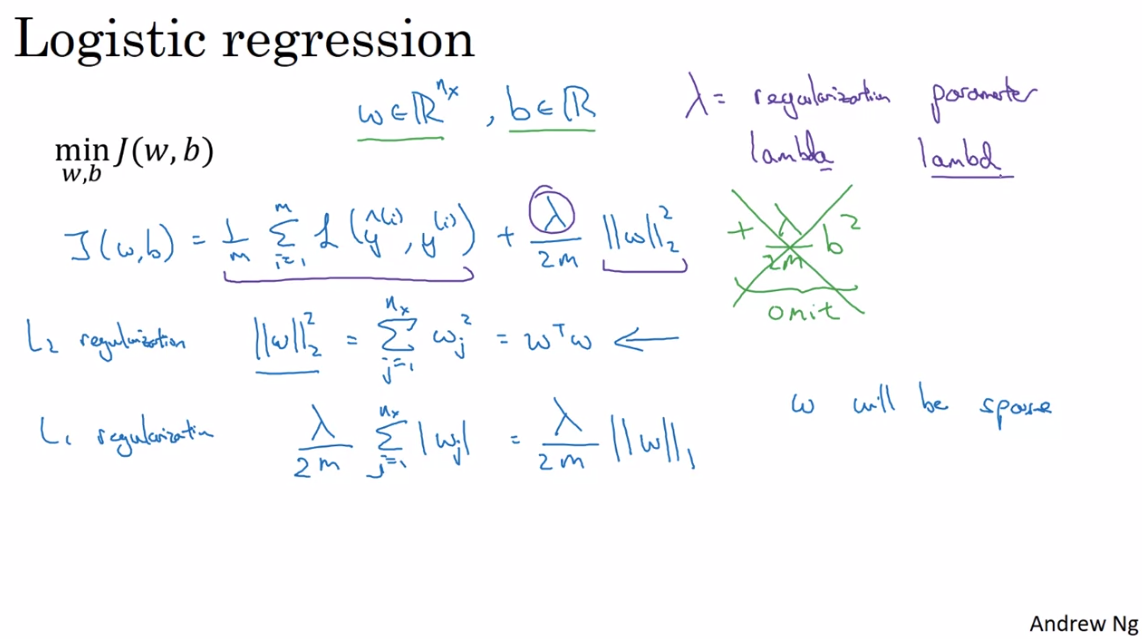 Logistic regression
w ∈ ℝ^{n_x}, b ∈ ℝ
λ = regularization parameter
lambda lambd
min_{w,b} J(w, b)
J(w,b) = 1/m Σ_{i=1}^{m} L(ŷ^{(i)}, y^{(i)}) + λ/2m ||w||_2^2 + λ/2m b^2
omit
L_2 regularization ||w||_2^2 = Σ_{j=1}^{n_x} w_j^2 = w^T w ←
L_1 regularization λ/2m Σ_{j=1}^{n_x} |w_j| = λ/2m ||w||_1
w will be sparse
Andrew Ng